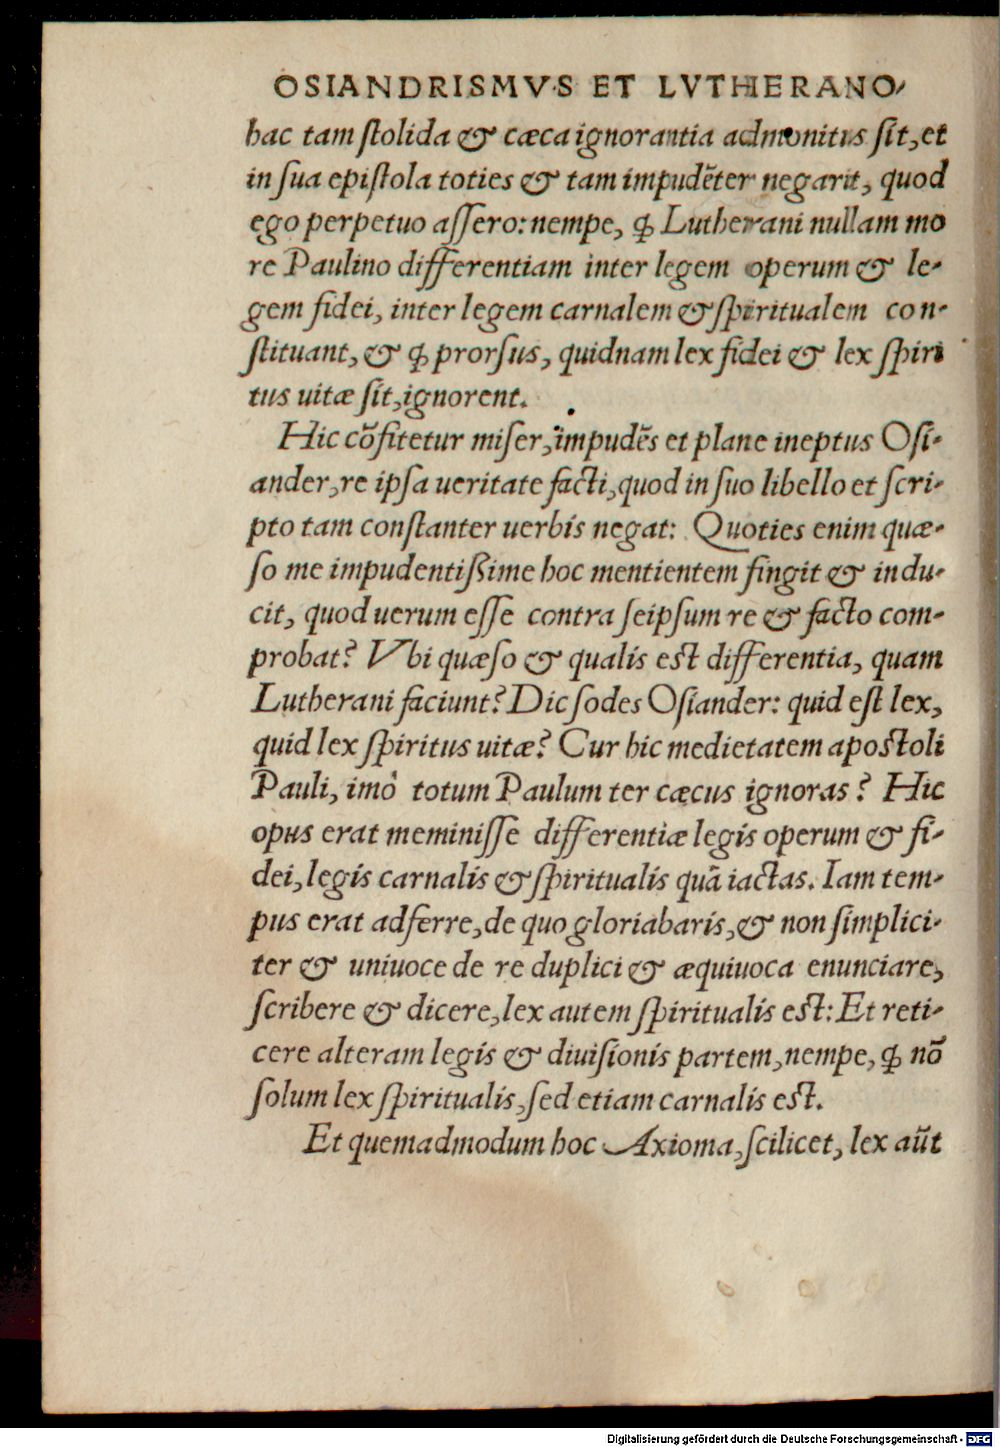 OSIANDRISMVS ET LVTHERANO-
hac tam stolida & cæca ignorantia admonitus sit, et
in sua epistola toties & tam impudēter negarit, quod
ego perpetuo assero: nempe, ꝙ Lutherani nullam mo
re Paulino differentiam inter legem operum & le-
gem fidei, inter legem carnalem & spiritualem con-
stituant, & ꝙ prorsus, quidnam lex fidei & lex spiri
tus uitæ sit, ignorent.
Hic cōfitetur miser, impudēs et plane ineptus Osi-
ander, re ipsa ueritate facti, quod in suo libello et scri-
pto tam constanter uerbis negat: Quoties enim quæ-
so me impudentißime hoc mentientem fingit & indu-
cit, quod uerum esse contra seipsum re & facto com-
probat? Vbi quæso & qualis est differentia, quam
Lutherani faciunt? Dic sodes Osiander: quid est lex,
quid lex spiritus uitæ? Cur hic medietatem apostoli
Pauli, imò totum Paulum ter cæcus ignoras? Hic
opus erat meminisse differentiæ legis operum & fi-
dei, legis carnalis & spiritualis quā iactas. Iam tem-
pus erat adferre, de quo gloriabaris, & non simplici-
ter & uniuoce de re duplici & æquiuoca enunciare,
scribere & dicere, lex autem spiritualis est: Et reti-
cere alteram legis & diuisionis partem, nempe, ꝙ nō
solum lex spiritualis, sed etiam carnalis est.
Et quemadmodum hoc Axioma, scilicet, lex aūt
Digitalisierung gefördert durch die Deutsche Forschungsgemeinschaft - DFG